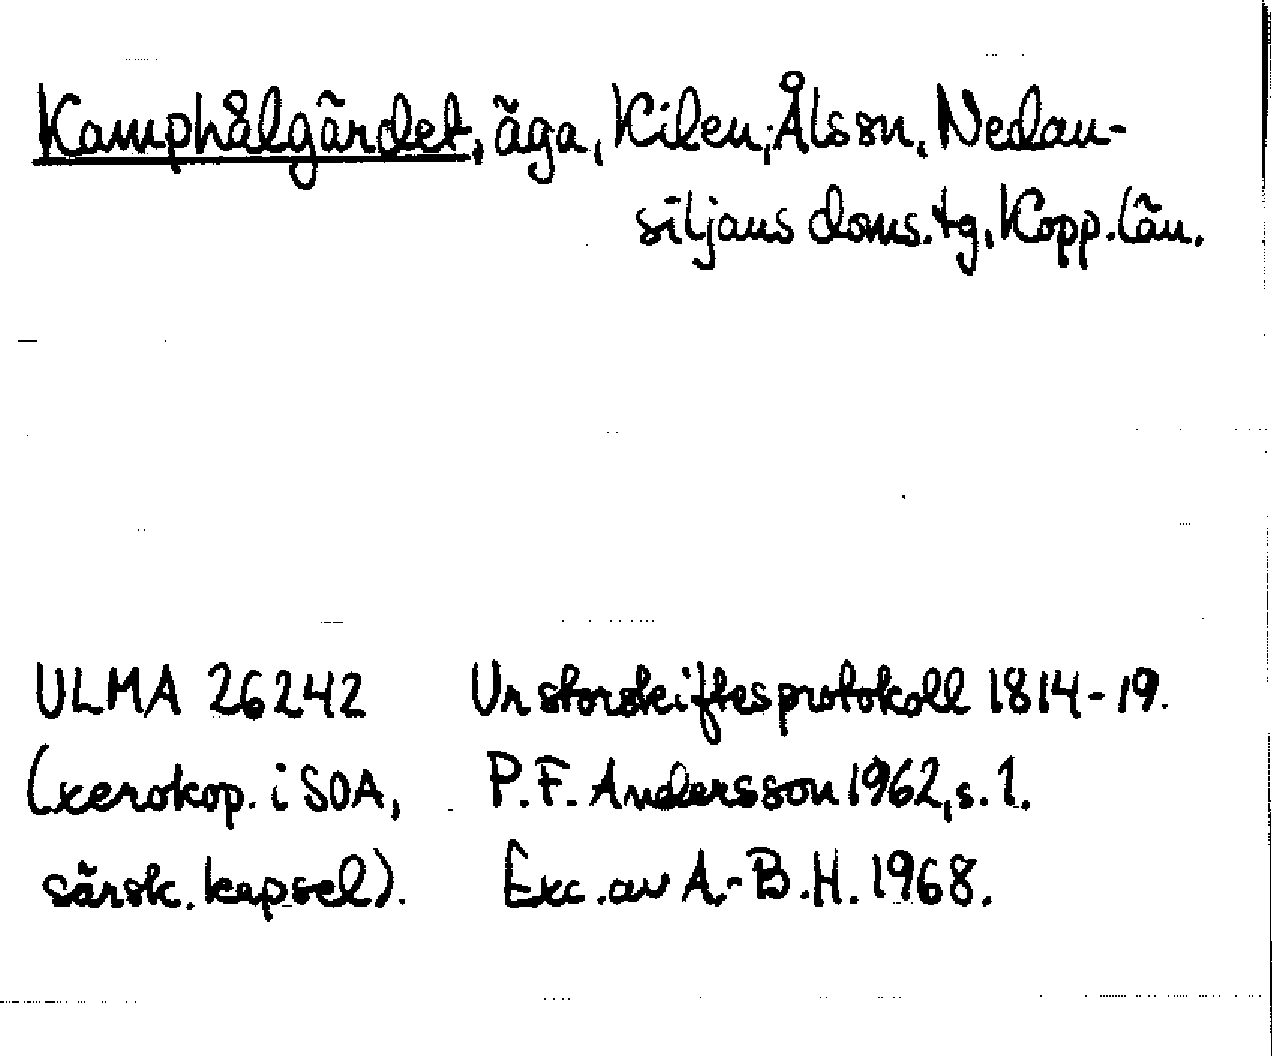 Kamphålgärdet, äga, Kilen, Åls sn, Nedan-
siljans doms. tg, Kopp. län.
ULMA 26242 Ur storskiftesprotokoll 1814-19.
(xerokop. i SOA, P.F. Andersson 1962, s. 1.
särsk. kapsel). Exc. av A.-B.H. 1968.